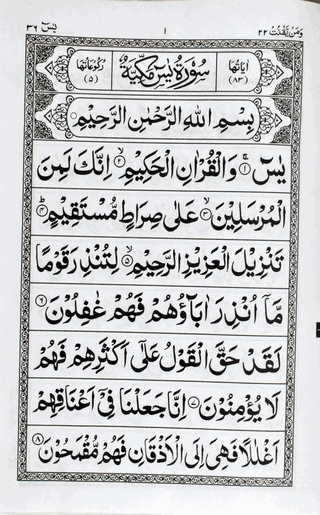 يٰسٓ ٣٦
١
وَمَن يَّقْنُتْ ٢٢
اٰيَاتُهَا (٨٣)
سُوْرَةُ يٰسٓ مَكِّيَّةٌ
رُكُوْعَاتُهَا (٥)
بِسْمِ اللهِ الرَّحْمٰنِ الرَّحِيْمِ
يٰسٓ ۚ﴿١﴾ وَالْقُرْاٰنِ الْحَكِيْمِ ۙ﴿٢﴾ اِنَّكَ لَمِنَ
الْمُرْسَلِيْنَ ۙ﴿٣﴾ عَلٰى صِرَاطٍ مُّسْتَقِيْمٍ ؕ﴿٤﴾
تَنْزِيْلَ الْعَزِيْزِ الرَّحِيْمِ ۙ﴿٥﴾ لِتُنْذِرَ قَوْمًا
مَّاۤ اُنْذِرَ اٰبَآؤُهُمْ فَهُمْ غٰفِلُوْنَ ﴿٦﴾
لَقَدْ حَقَّ الْقَوْلُ عَلٰۤى اَكْثَرِهِمْ فَهُمْ
لَا يُؤْمِنُوْنَ ﴿٧﴾ اِنَّا جَعَلْنَا فِىْۤ اَعْنَاقِهِمْ
اَغْلٰلًا فَهِىَ اِلَى الْاَذْقَانِ فَهُمْ مُّقْمَحُوْنَ ﴿٨﴾